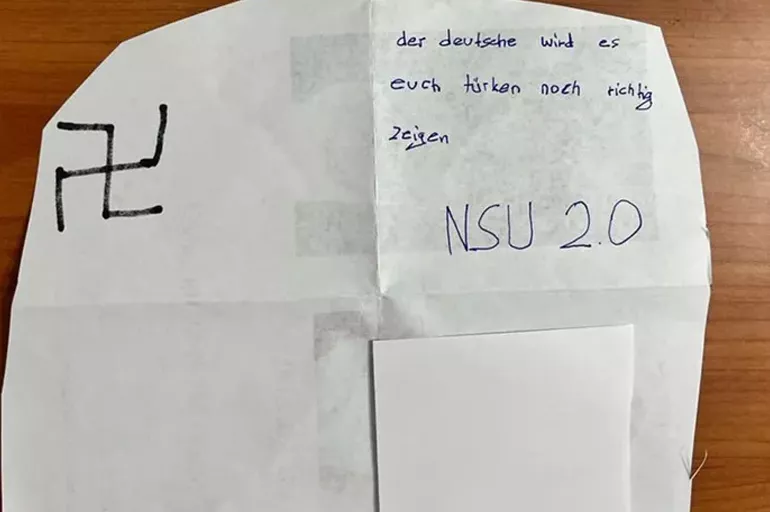 der deutsche wird es
euch türken noch richtig
zeigen
NSU 2.0